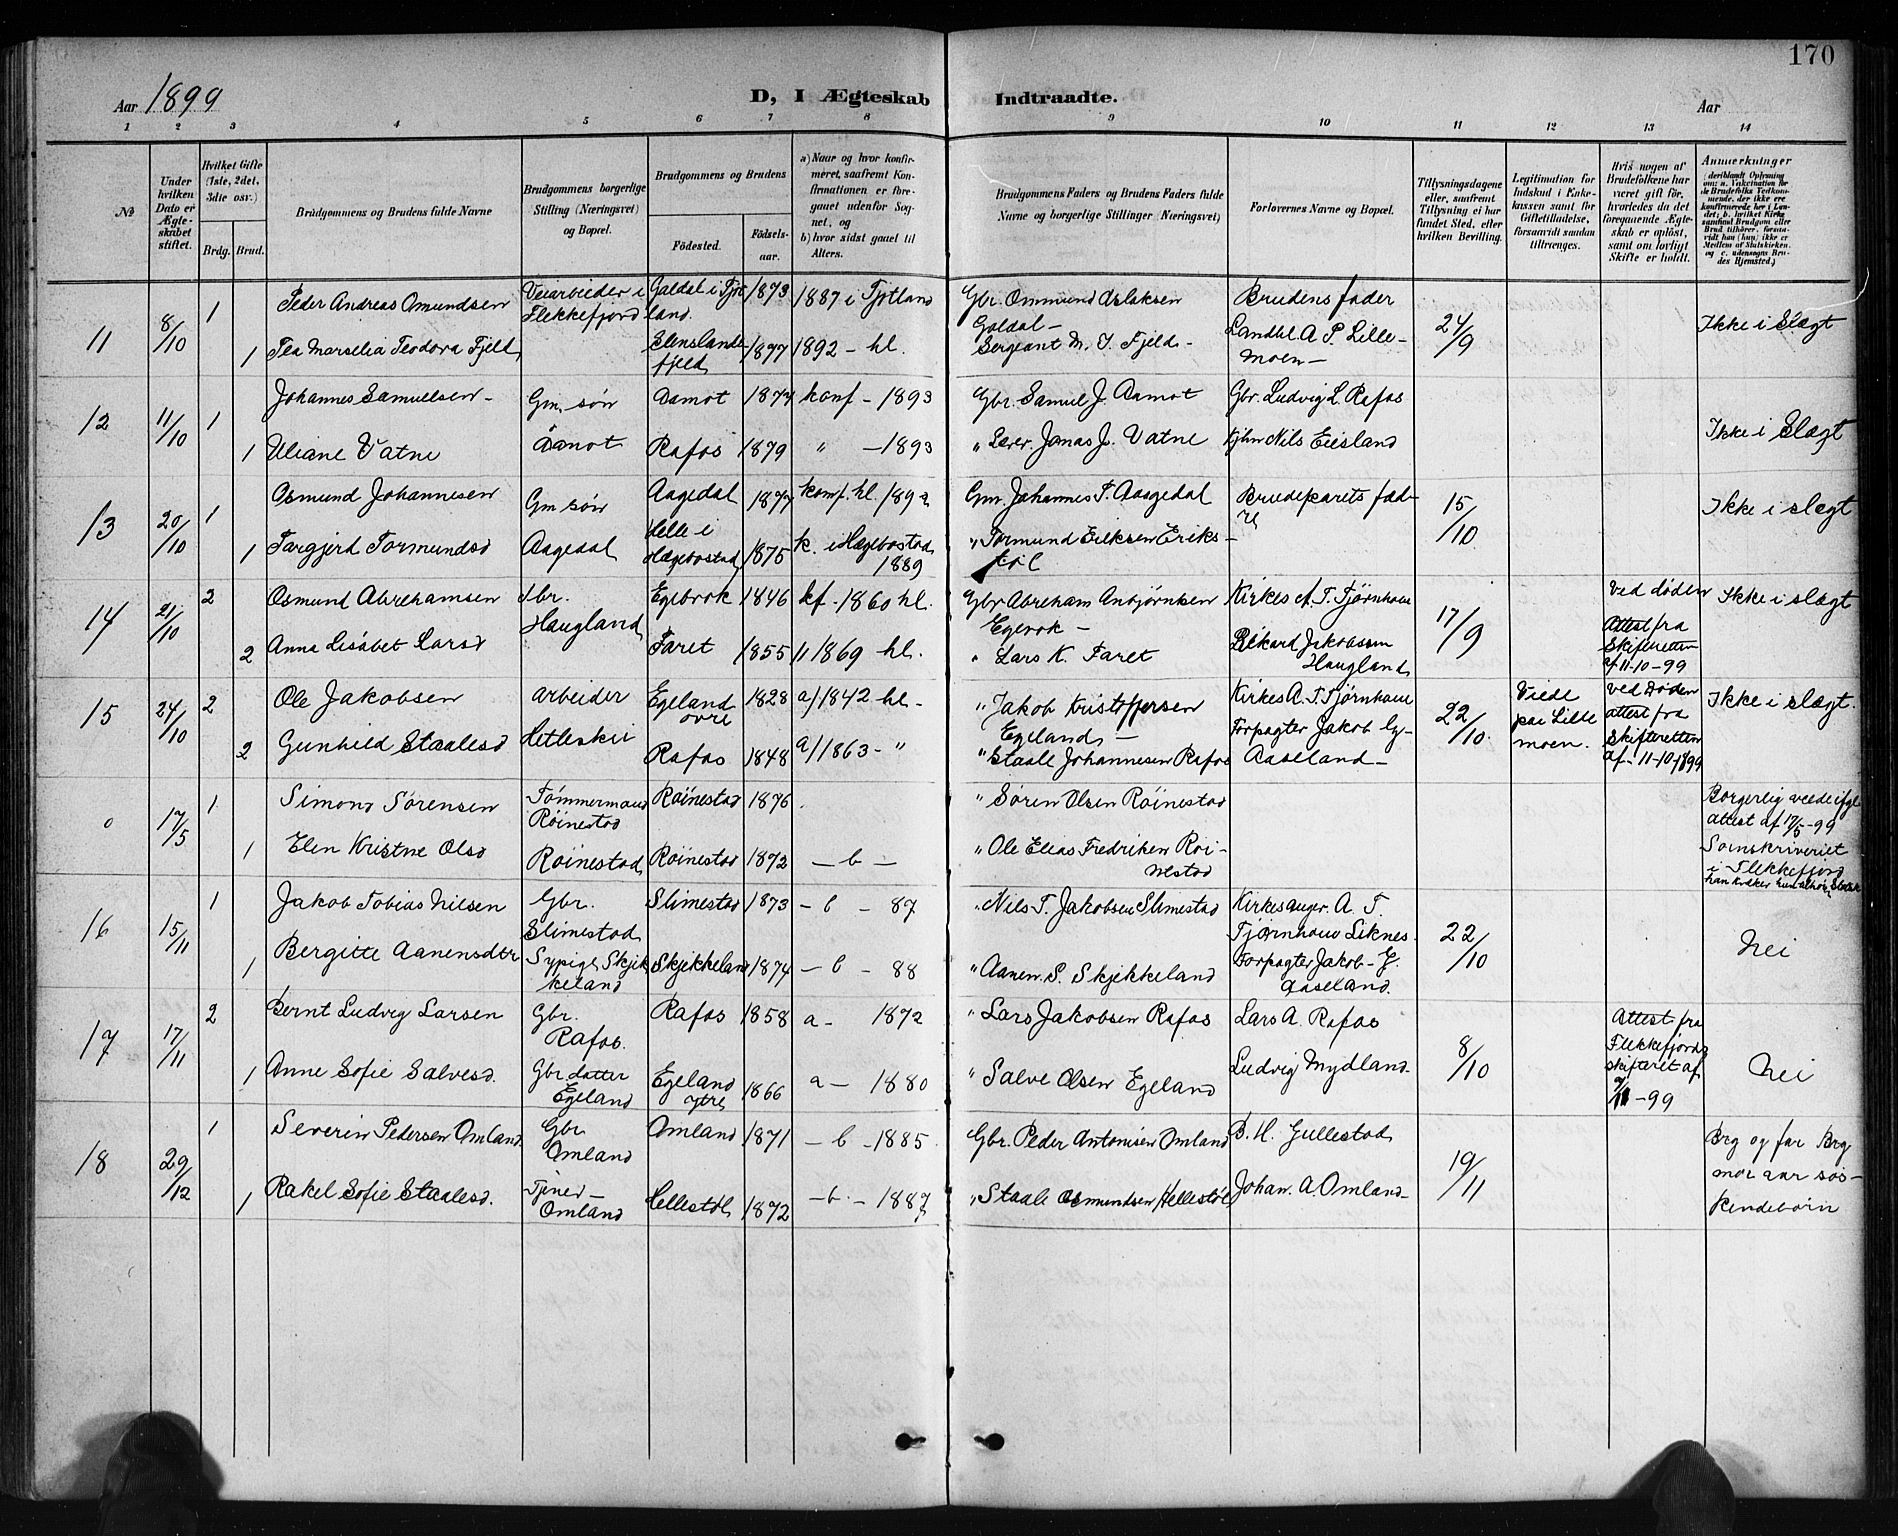 170
Aar 1899
D, I Ægteskab Indtraadte.
Aar
1 2 3 4 5 6 7 8 9 10 11 12 13 14
№
Under hvilken Dato er Ægteskabet stiftet.
Hvilket Gifte (1ste, 2det, 3die osv.)
Brdg. Brud.
Brudgommens og Brudens fulde Navne
Brudgommens borgerlige Stilling (Næringsvei) og Bopæl.
Brudgommens og Brudens
Födested. Födselsaar.
a) Naar og hvor konfirmeret, saafremt Konfirmationen er foregaaet udenfor Sognet, og
b) hvor sidst gaaet til Alters.
Brudgommens Faders og Brudens Faders fulde Navne og borgerlige Stillinger (Næringsvei)
Forlovernes Navne og Bopæl.
Tillysningsdagene eller, saafremt Tillysning ei har fundet Sted, efter hvilken Bevilling.
Legitimation for Indskud i Enkekassen samt for Giftetilladelse, forsaavidt saadan tiltrænges.
Hvis nogen af Brudefolkene har været gift før, hvorledes da det foregaaende Ægteskab er oplöst, samt om lovligt Skifte er holdt.
Anmerkninger
11 8/10 1 Peder Andreas Omundsen Veiarbeider i Flekkefjord Galdal i Fjotland. 1873 1887 i Fjotland Gbr. Ommund Aslaksen Galdal- Brudens fader 24/9 Ikke i Slægt
1 Tea Marselia Teodora Fjeld Elenslandsfjeld 1877 1892 - hl. Sergeant M. J. Fjeld- Landbl. A. P. Lillemoen-
12 11/10 1 Johannes Samuelsen- Gm. søn Aamot Aamot 1874 konf - 1893 Gbr. Samuel J. Aamot Gbr. Ludvig L. Rafos Ikke i Slægt
1 Uliane Vatne Rafos 1879 " -1893 " Lærer. Jonas J. Vatne Kjhn Nils Eiesland
13 20/10 1 Osmund Johannesen Gm søn Aagedal Aagedal 1877 konf. hl. 1892 Gm. Johannes T. Aagedal Brudeparets fædre 15/10 Ikke i slægt
1 Targjerd Tormundsd Helle i Hægebostad 1875 k. i Hægebostad 1889 " Tormund Eriksen Eriks-
14 21/10 2 Osmund Abrehamsen Gbr. Haugland Egebrok 1846 kf - 1860 hl. Gbr Abreham Anbjørnsen Egebrok - Kirkes A. T. Tjørnhom 17/9 ved døden Ikke i slægt
2 Anna Lisabet Larsd Faret 1855 " 1869 hl. " Lars K. Faret Rikard Jakobsen Haugland Attest fra Skifteretten af 11-10-99
15 24/10 2 Ole Jakobsen arbeider Hetleskei Egeland øvre 1828 a/1842 hl- " Jakob Kristoffersen Egeland - Kirkes A. T. Tjørnhom 22/10 Viede paa Lillemoen. ved Døden attest fra Skifteretten af 11-10-1899 Ikke i slægt.
2 Gunhild Staalesd Rafos 1848 a/1863- " " Staale Johannesen Rafos Forpagter Jakob Ey- Aaseland-
0 17/5 1 Simon Sørensen Tømmermand Röinestad Röinestad 1876 " Søren Olsen Röinestad Borgerlig viede ifgl attest af 17/5-99 Sorenskriveriet i Flekkefjord
1 Elen Kristne Olsd Röinestad Röinestad 1872 - b - " Ole Elias Fredriksen Röinestad
16 15/11 1 Jakob Tobias Nilsen Gbr. Slimestad Slimestad 1873 - b - 87 " Nils T. Jakobsen Slimestad Kirkesanger. A. T. Tjørnhom Liknes. 22/10 Nei
1 Bergitte Aanensdtr Sypige Skjekkeland Skjekkeland 1874 - b - 88 " Aanen. S. Skjekkeland Forpagter Jakob - Aaseland.
17 17/11 2 Bernt Ludvig Larsen Gbr. Rafos. Rafos 1858 a- 1872 " Lars Jakobsen Rafos Lars A. Rafos 8/10 Attest fra Flekkefjords skifteret af 9/11-99 Nei
1 Anne Sofie Salvesd. Gbr datter Egeland Egeland ytre 1866 a- 1880 " Salve Olsen Egeland Ludvig Mydland
18 29/12 1 Severin Pedersen Omland Gbr Omland Omland 1871 - b - 1885 Gbr. Peder Antonisen Omland B. H. Gullestad 19/11 Brg og far Brg mor aar søskendebørn
1 Rakel Sofie Staalesd. Tjener- Omland Hellestöl 1872 - b - 1887 " Staale Osmundsen Hellestöl Johan. A Omland-